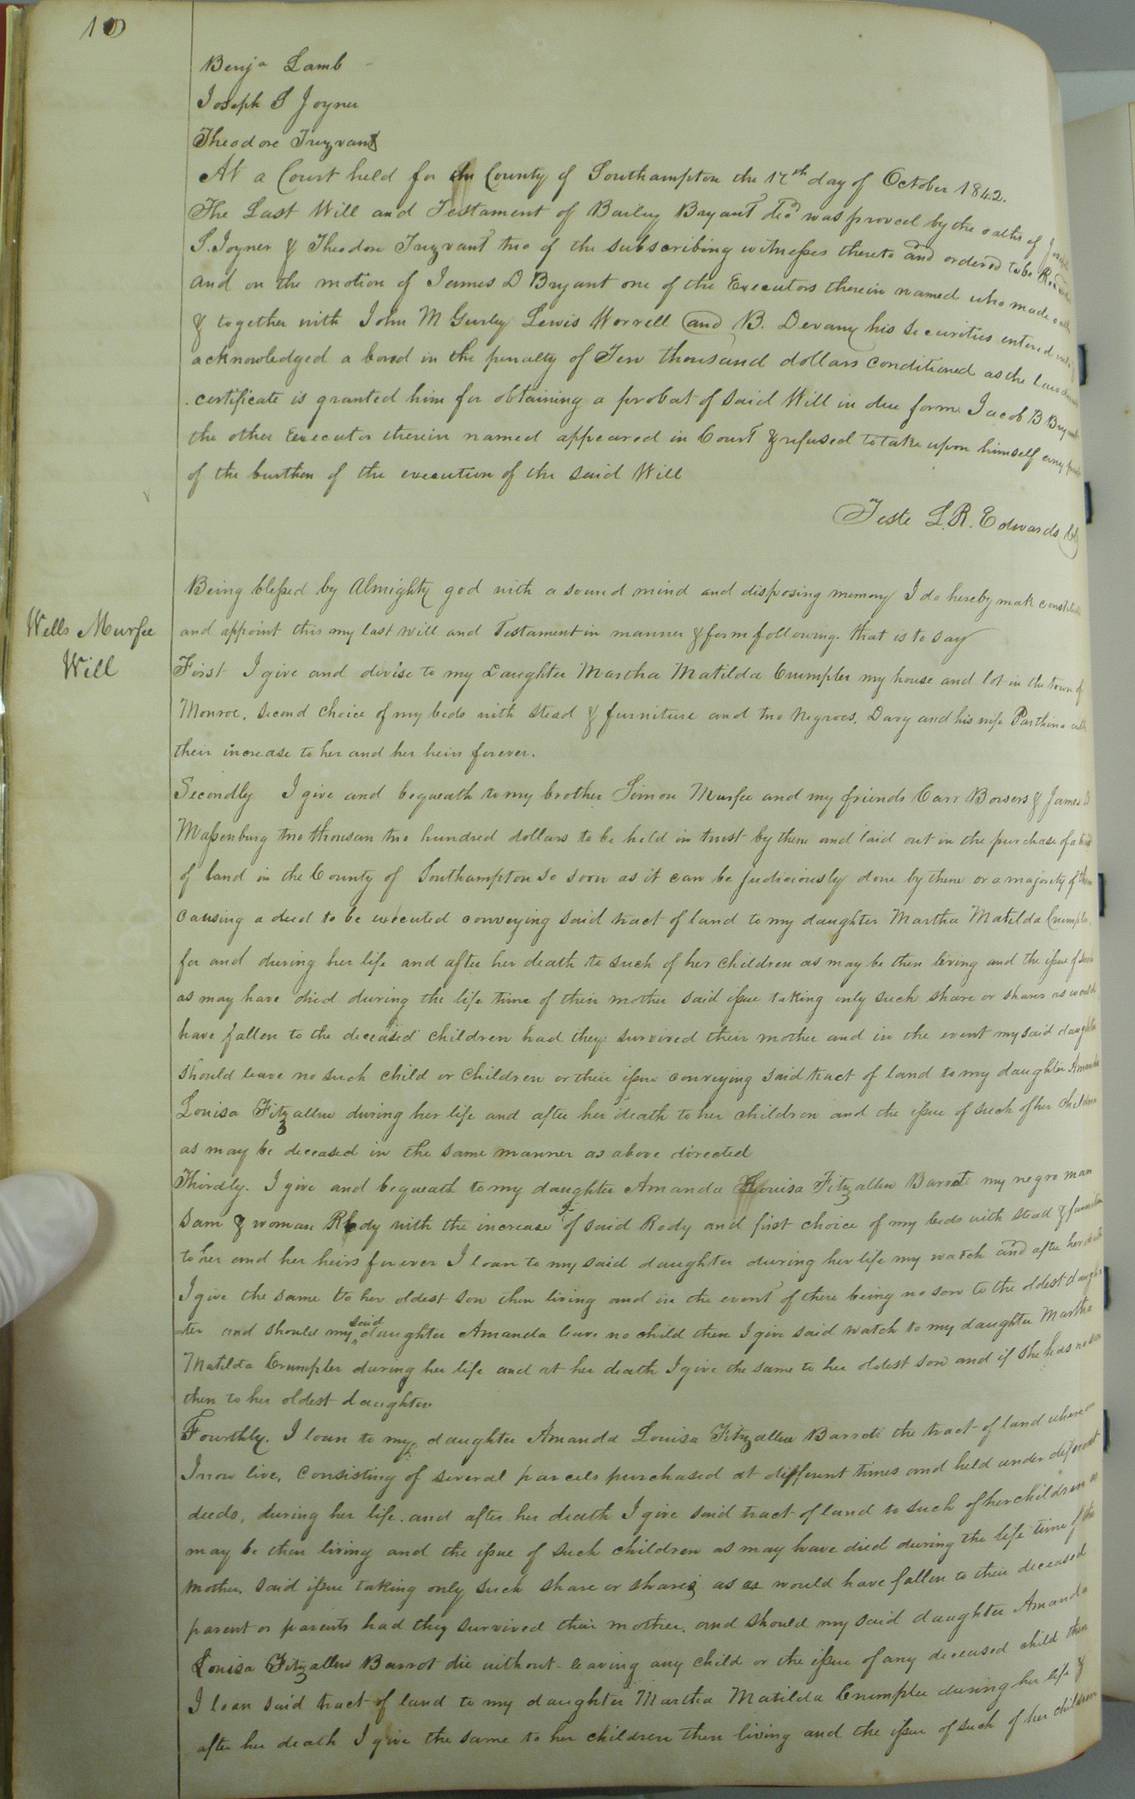 10
Benja Lamb
Joseph S Joyner
Theodore Trezvant
At a Court held for the County of Southampton the 17th day of October 1842.
The Last Will and Testament of Bailey Bryant decd was proved by the oaths of Joseph
S. Joyner & Theodore Trezvant two of the subscribing witnesses thereto and ordered to be Recorded
And on the motion of James D Bryant one of the Executors therein named who made oath
& together with John M Gurley Lewis Worrell and B. Devany his securities entered into &
acknowledged a bond in the penalty of Ten thousand dollars conditioned as the Law
certificate is granted him for obtaining a probat of said Will in due form Jacob B Bryant
the other Executor therein named appeared in Court & refused to take upon himself any part
of the burthen of the execution of the said Will
Teste L. R. Edwards
Wells Murfee
Will
Being blessed by Almighty god with a sound mind and disposing memory I do hereby mak constitute
and appoint this my last will and Testament in manner & form following. that is to say
First I give and devise to my Daughter Martha Matilda Crumpler my house and lot in the town of
Monroe, second choice of my beds with stead & furniture and two Negroes, Davy and his wife Parthena with
their increase to her and her heirs forever.
Secondly I give and bequeath to my brother Simon Murfee and my friends Carr Bowers & James
Massenburg two thousan two hundred dollars to be held in trust by them and laid out in the purchase of a tract
of land in the County of Southampton so soon as it can be judiciously done by them or a majority of them
Causing a deed to be executed conveying said tract of land to my daughter Martha Matilda Crumpler,
for and during her life and after her death to such of her children as may be then living and the issue of such
as may have died during the life time of their mother said issue taking only such share or shares as would
have fallen to the deceased children had they survived their mother and in the event my said daughter
should leave no such child or children or their issue conveying said tract of land to my daughter Amanda
Louisa Fitzallen during her life and after her death to her children and the issue of such of her children
as may be deceased in the same manner as above directed
Thirdly. I give and bequeath to my daughter Amanda Louisa Fitzallen Barrot my negro man
Sam & woman Rody with the increase of said Rody and first choice of my beds with stead & furniture
to her and her heirs forever I loan to my said daughter during her life my watch and after her death
I give the same to her oldest son then living and in the event of there being no son to the oldest daugh
ter and should my said daughter Amanda leave no child then I give said watch to my daughter Martha
Matilda Crumpler during her life and at her death I give the same to her oldest son and if she has no son
then to her oldest daughter
Fourthly. I loan to my daughter Amanda Louisa Fitzallen Barrot the tract of land whereon
I now live, consisting of several parcels purchased at different times and held under different
deeds, during her life. and after her death I give said tract of land to such of her children as
may be then living and the issue of such children as may have died during the life time of the
mother, said issue taking only such share or shares as as would have fallen to their deceased
parent or parents had they survived their mother, and should my said daughter Amanda
Louisa Fitzallen Barrot die without leaving any child or the issue of any deceased child then
I loan said tract of land to my daughter Martha Matilda Crumpler during her life &
after her death I give the same to her children then living and the issue of such of her children